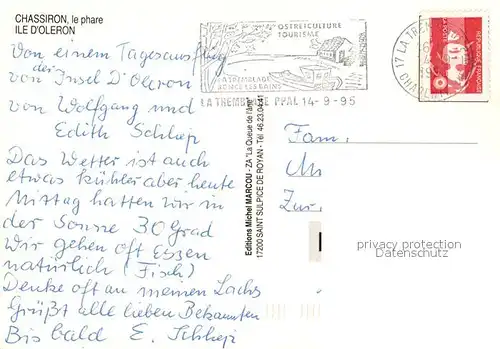 CHASSIRON, le phare
ILE D'OLERON
Von einem Tagesausflug
der Insel D'Oleron
von Wolfgang und
Edith Schhep
Das Wetter ist auch
etwas kühler aber heute
Mittag hatten wir in
der Sonne 30 Grad
Wir gehen oft Essen
natürlich (Fisch)
Denke oft an meinen Lachs
Grüßt alle lieben Bekannten
Bis bald E. Schhep
OSTREICULTURE
TOURISME
LA TREMBLADE
RONCE LES BAINS
LA TREMBLADE PPAL 14-9-95
17 LA TREMBLADE
REPUBLIQUE FRANCAISE
Editions Michel MARCOU - ZA "La Queue de l'âne"
17200 SAINT SULPICE DE ROYAN - Tél 46.23.04.41
Fam.
Zur
privacy protection
Datenschutz